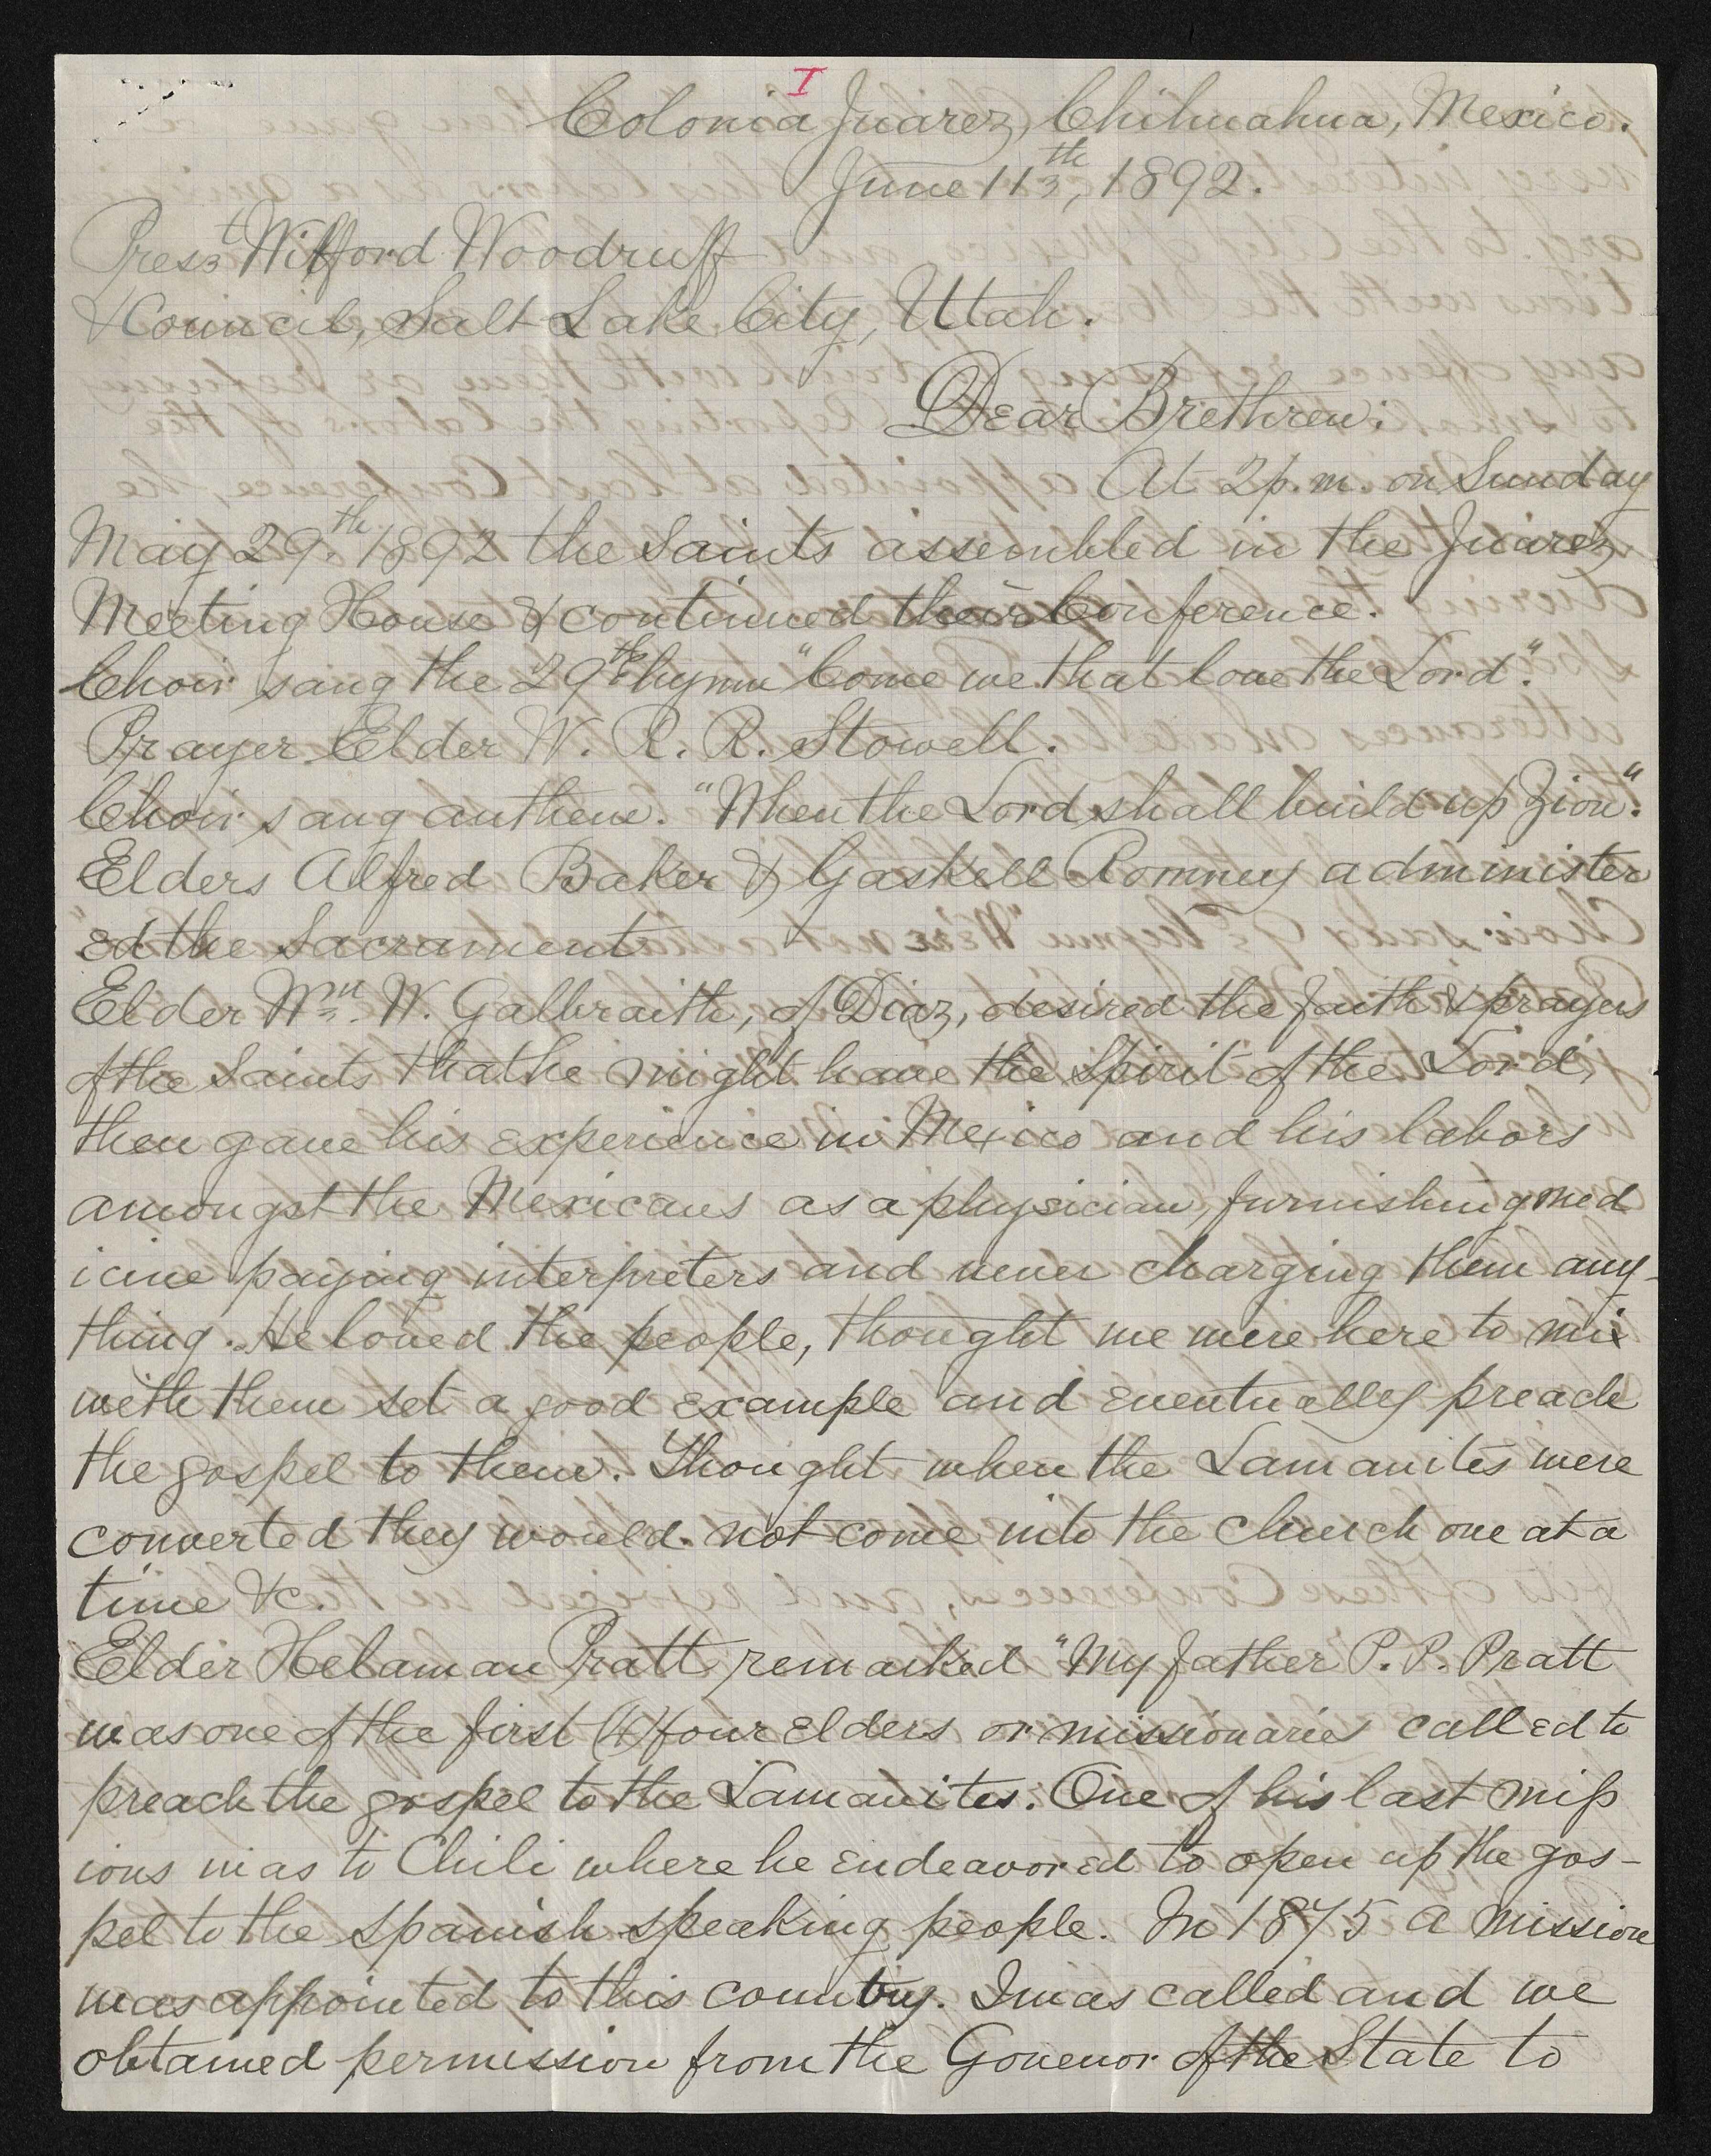 I
Colonia Juarez, Chihuahua, Mexico.
June 11th, 1892.
Prest Wilford Woodruff
& Council, Salt Lake City, Utah.
Dear Brethren:
At 2 p.m. on Sunday
May 29th. 1892 the Saints assembled in the Juarez
Meeting House & continued their Conference.
Choir sang the 29th hymn "Come we that love the Lord".
Prayer Elder W. R. R. Stowell.
Choir sang anthem. "When the Lord shall build up Zion".
Elders Alfred Baker & Gaskell Romney administer
ed the Sacrament
Elder Wm. W. Galbraith, of Diaz, desired the faith & prayers
of the Saints that he might have the Spirit of the Lord,
then gave his experience in Mexico and his labors
amongst the Mexicans as a physician, furnishing med
icine paying interpreters and never charging them any-
thing. He loved the people, thought we were here to mix
with them set a good example and eventually preach
the gospel to them. Thought when the Lamanites were
converted they would not come into the church one at a
time &c.
Elder Helaman Pratt remarked "My father P. P. Pratt
was one of the first (4) four Elders or missionaries called to
preach the gospel to the Lamanites. One of his last miss
ions was to Chili where he endeavored to open up the gos-
pel to the Spanish speaking people. In 1875 a mission
was appointed to this country. I was called and we
obtained permission from the Govenor of the State to